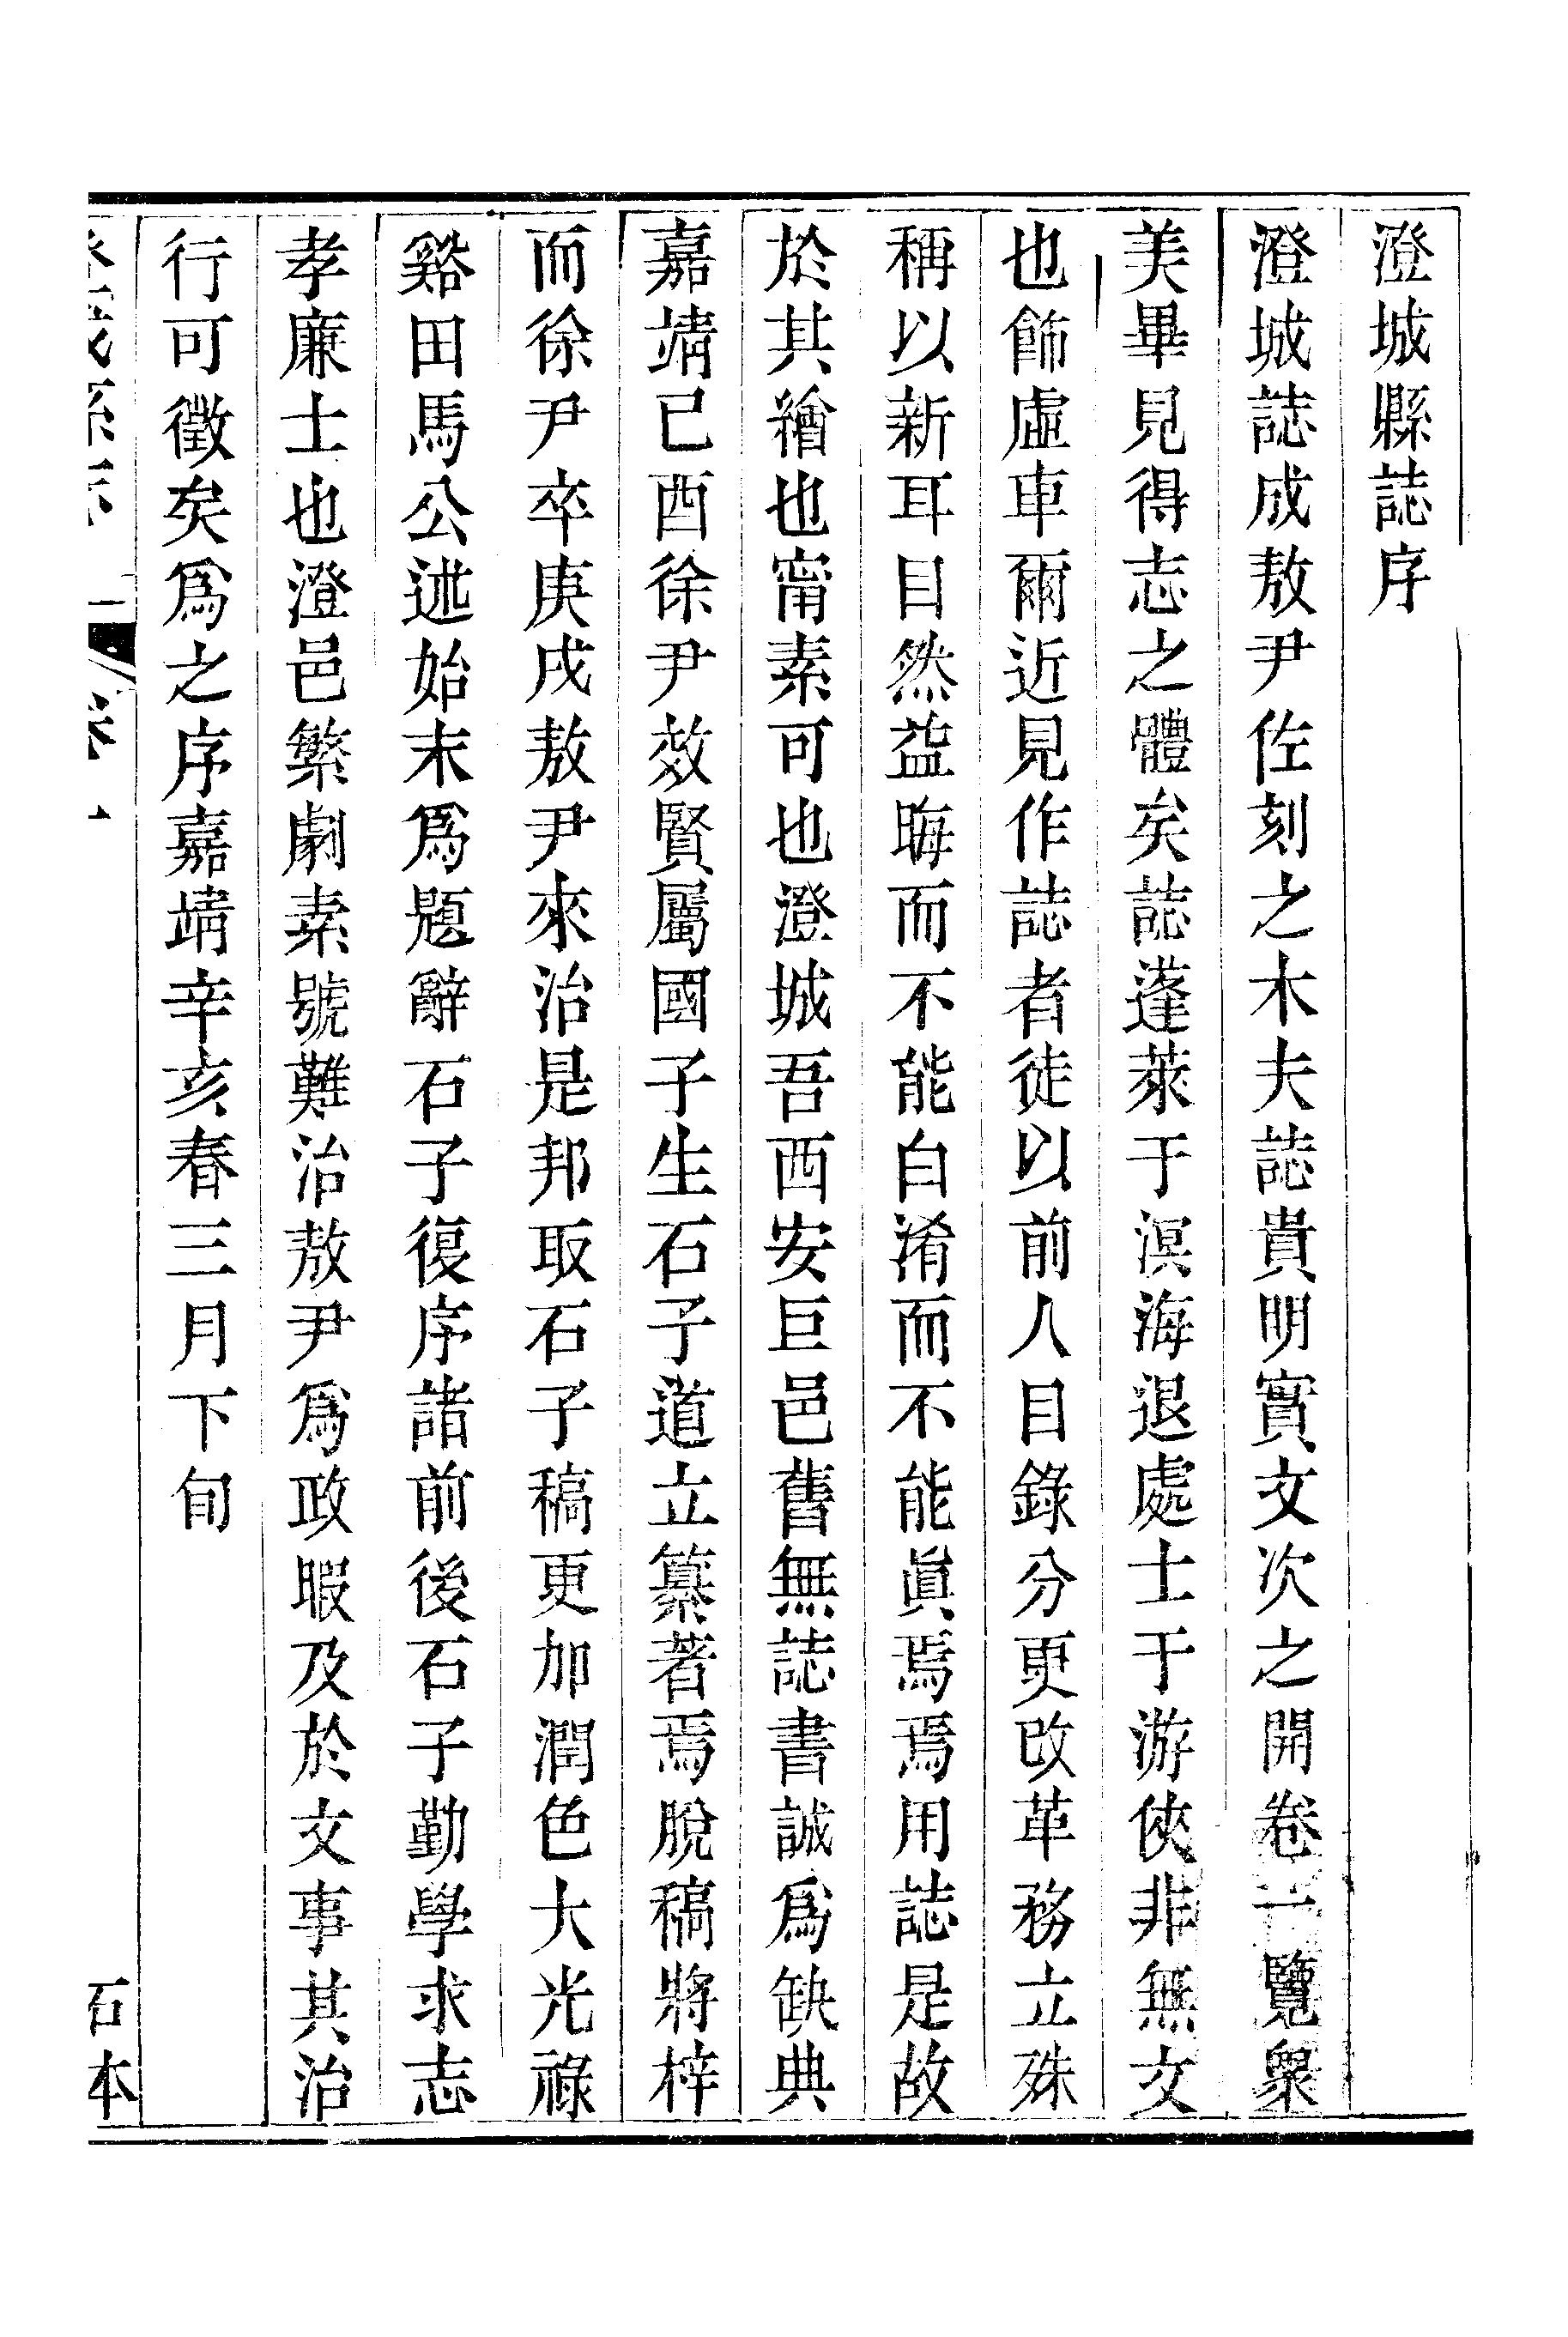 澄城縣誌序
澄城誌成敖尹佐刻之木夫誌貴明實文次之開卷一覽衆
美畢見得志之體矣誌蓬萊于溟海退處士于游俠非無文
也飾虛車爾近見作誌者徒以前人目錄分更改革務立殊
稱以新耳目然益晦而不能白淆而不能眞焉焉用誌是故
於其繪也甯素可也澄城吾西安巨邑舊無誌書誠爲缺典
嘉靖已酉徐尹效賢屬國子生石子道立纂著焉脫稿將梓
而徐尹卒庚戌敖尹來治是邦取石子稿更加潤色大光祿
谿田馬公述始末爲題辭石子復序諸前後石子勤學求志
孝廉士也澄邑繁劇素號難治敖尹爲政暇及於文事其治
行可徵矣爲之序嘉靖辛亥春三月下旬
石本